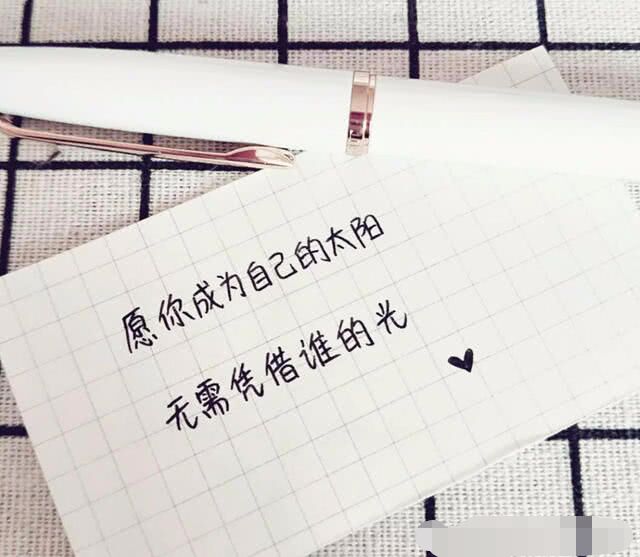 愿你成为自己的太阳
无需凭借谁的光